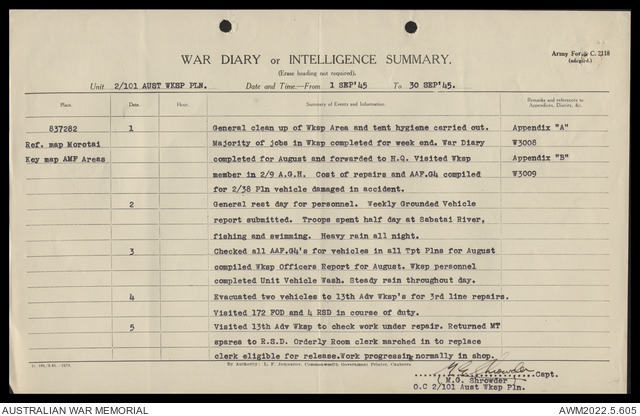 WAR DIARY or INTELLIGENCE SUMMARY.
(Erase heading not required).
Army Form C. 2118
(adapted.)
Unit 2/101 AUST WKSP PLN. Date and Time—From 1 SEP'45 To 30 SEP'45.
Place. Date. Hour. Summary of Events and Information. Remarks and references to
Appendices, Diaries, &c.
837282 1 General clean up of Wksp Area and tent hygiene carried out. Appendix "A"
Ref. map Morotai Majority of jobs in Wksp completed for week end. War Diary W3008
Key map AMF Areas completed for August and forwarded to H.Q. Visited Wksp Appendix "B"
member in 2/9 A.G.H. Cost of repairs and AAF.G4 compiled W3009
for 2/38 Pln vehicle damaged in accident.
2 General rest day for personnel. Weekly Grounded Vehicle
report submitted. Troops spent half day at Sabatai River,
fishing and swimming. Heavy rain all night.
3 Checked all AAF.G4's for vehicles in all Tpt Plns for August
compiled Wksp Officers Report for August. Wksp personnel
completed Unit Vehicle Wash. Steady rain throughout day.
4 Evacuated two vehicles to 13th Adv Wksp's for 3rd line repairs.
Visited 172 FOD and 4 RSD in course of duty.
5 Visited 13th Adv Wksp to check work under repair. Returned MT
spares to R.S.D. Orderly Room clerk marched in to replace
clerk eligible for release.Work progressing normally in shop.
By Authority: L. F. Johnston, Commonwealth Government Printer, Canberra.
M G Shrowder Capt.
( M.G. Shrowder )
O.C 2/101 Aust Wksp Pln.
AUSTRALIAN WAR MEMORIAL
AWM2022.5.605